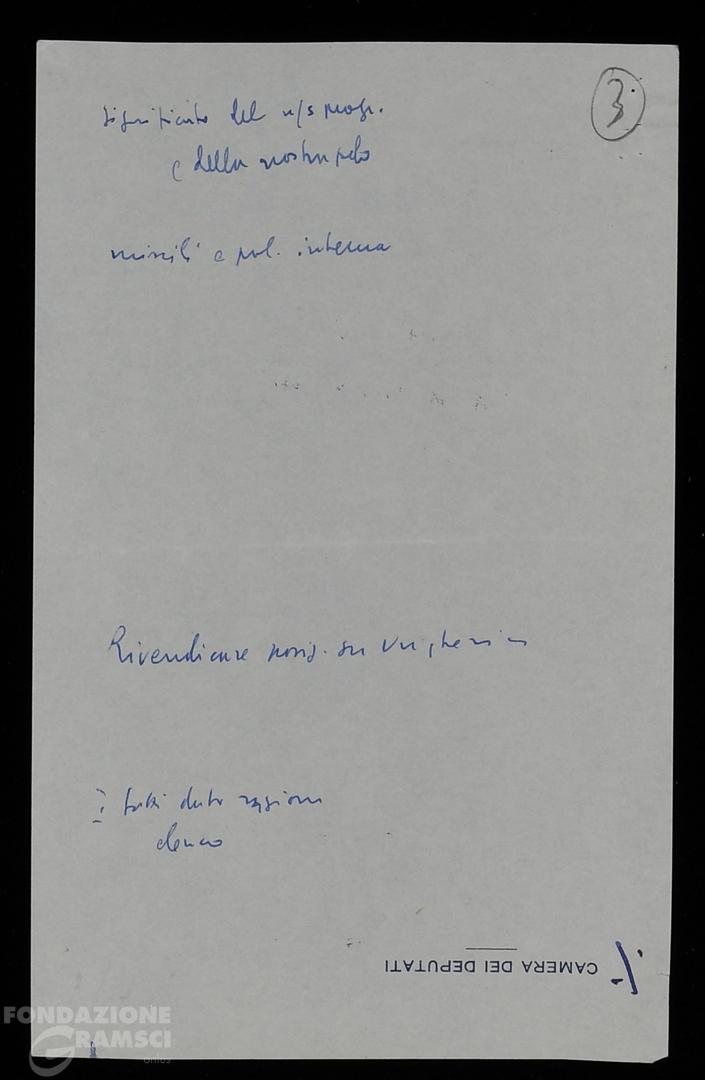 3
significato del n/s progr.
e della nostra
missili e pol. interna
Rivendicare posiz. su Ungheria
i fatti dato ragione
elenco
CAMERA DEI DEPUTATI
FONDAZIONE
GRAMSCI
onlus